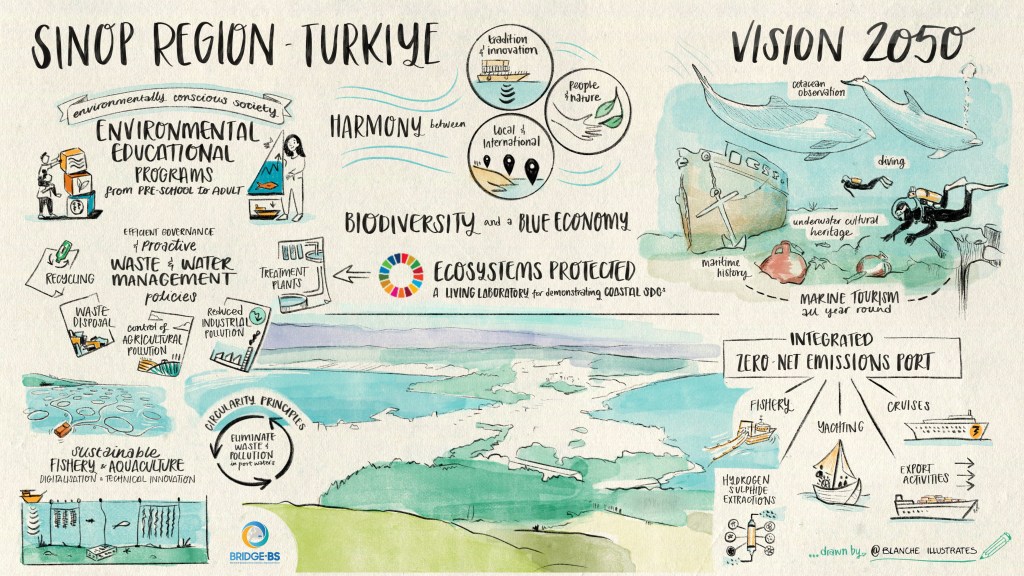 SINOP REGION - TURKIYE
VISION 2050
environmentally conscious society
ENVIRONMENTAL
EDUCATIONAL
PROGRAMS
from PRE-SCHOOL to ADULT
HARMONY between
tradition
& innovation
People
& nature
Local &
International
BIODIVERSITY and a BLUE ECONOMY
ECOSYSTEMS PROTECTED
A LIVING LABORATORY for demonstrating COASTAL SDGs
EFFICIENT GOVERNANCE
& Proactive
WASTE & WATER
MANAGEMENT
policies
RECYCLING
TREATMENT
PLANTS
WASTE
DISPOSAL
control of
AGRICULTURAL
POLLUTION
Reduced
INDUSTRIAL
POLLUTION
cetacean
observation
diving
underwater cultural
heritage
maritime
history
MARINE TOURISM
all YEAR round
INTEGRATED
ZERO-NET EMISSIONS PORT
FISHERY
YACHTING
CRUISES
3
EXPORT
ACTIVITIES
HYDROGEN
SULPHIDE
EXTRACTIONS
CIRCULARITY PRINCIPLES
ELIMINATE
WASTE &
POLLUTION
in port waters
sustainable
FISHERY & AQUACULTURE
DIGITALISATION & TECHNICAL INNOVATION
BRIDGE-BS
...drawn by @BLANCHE ILLUSTRATES